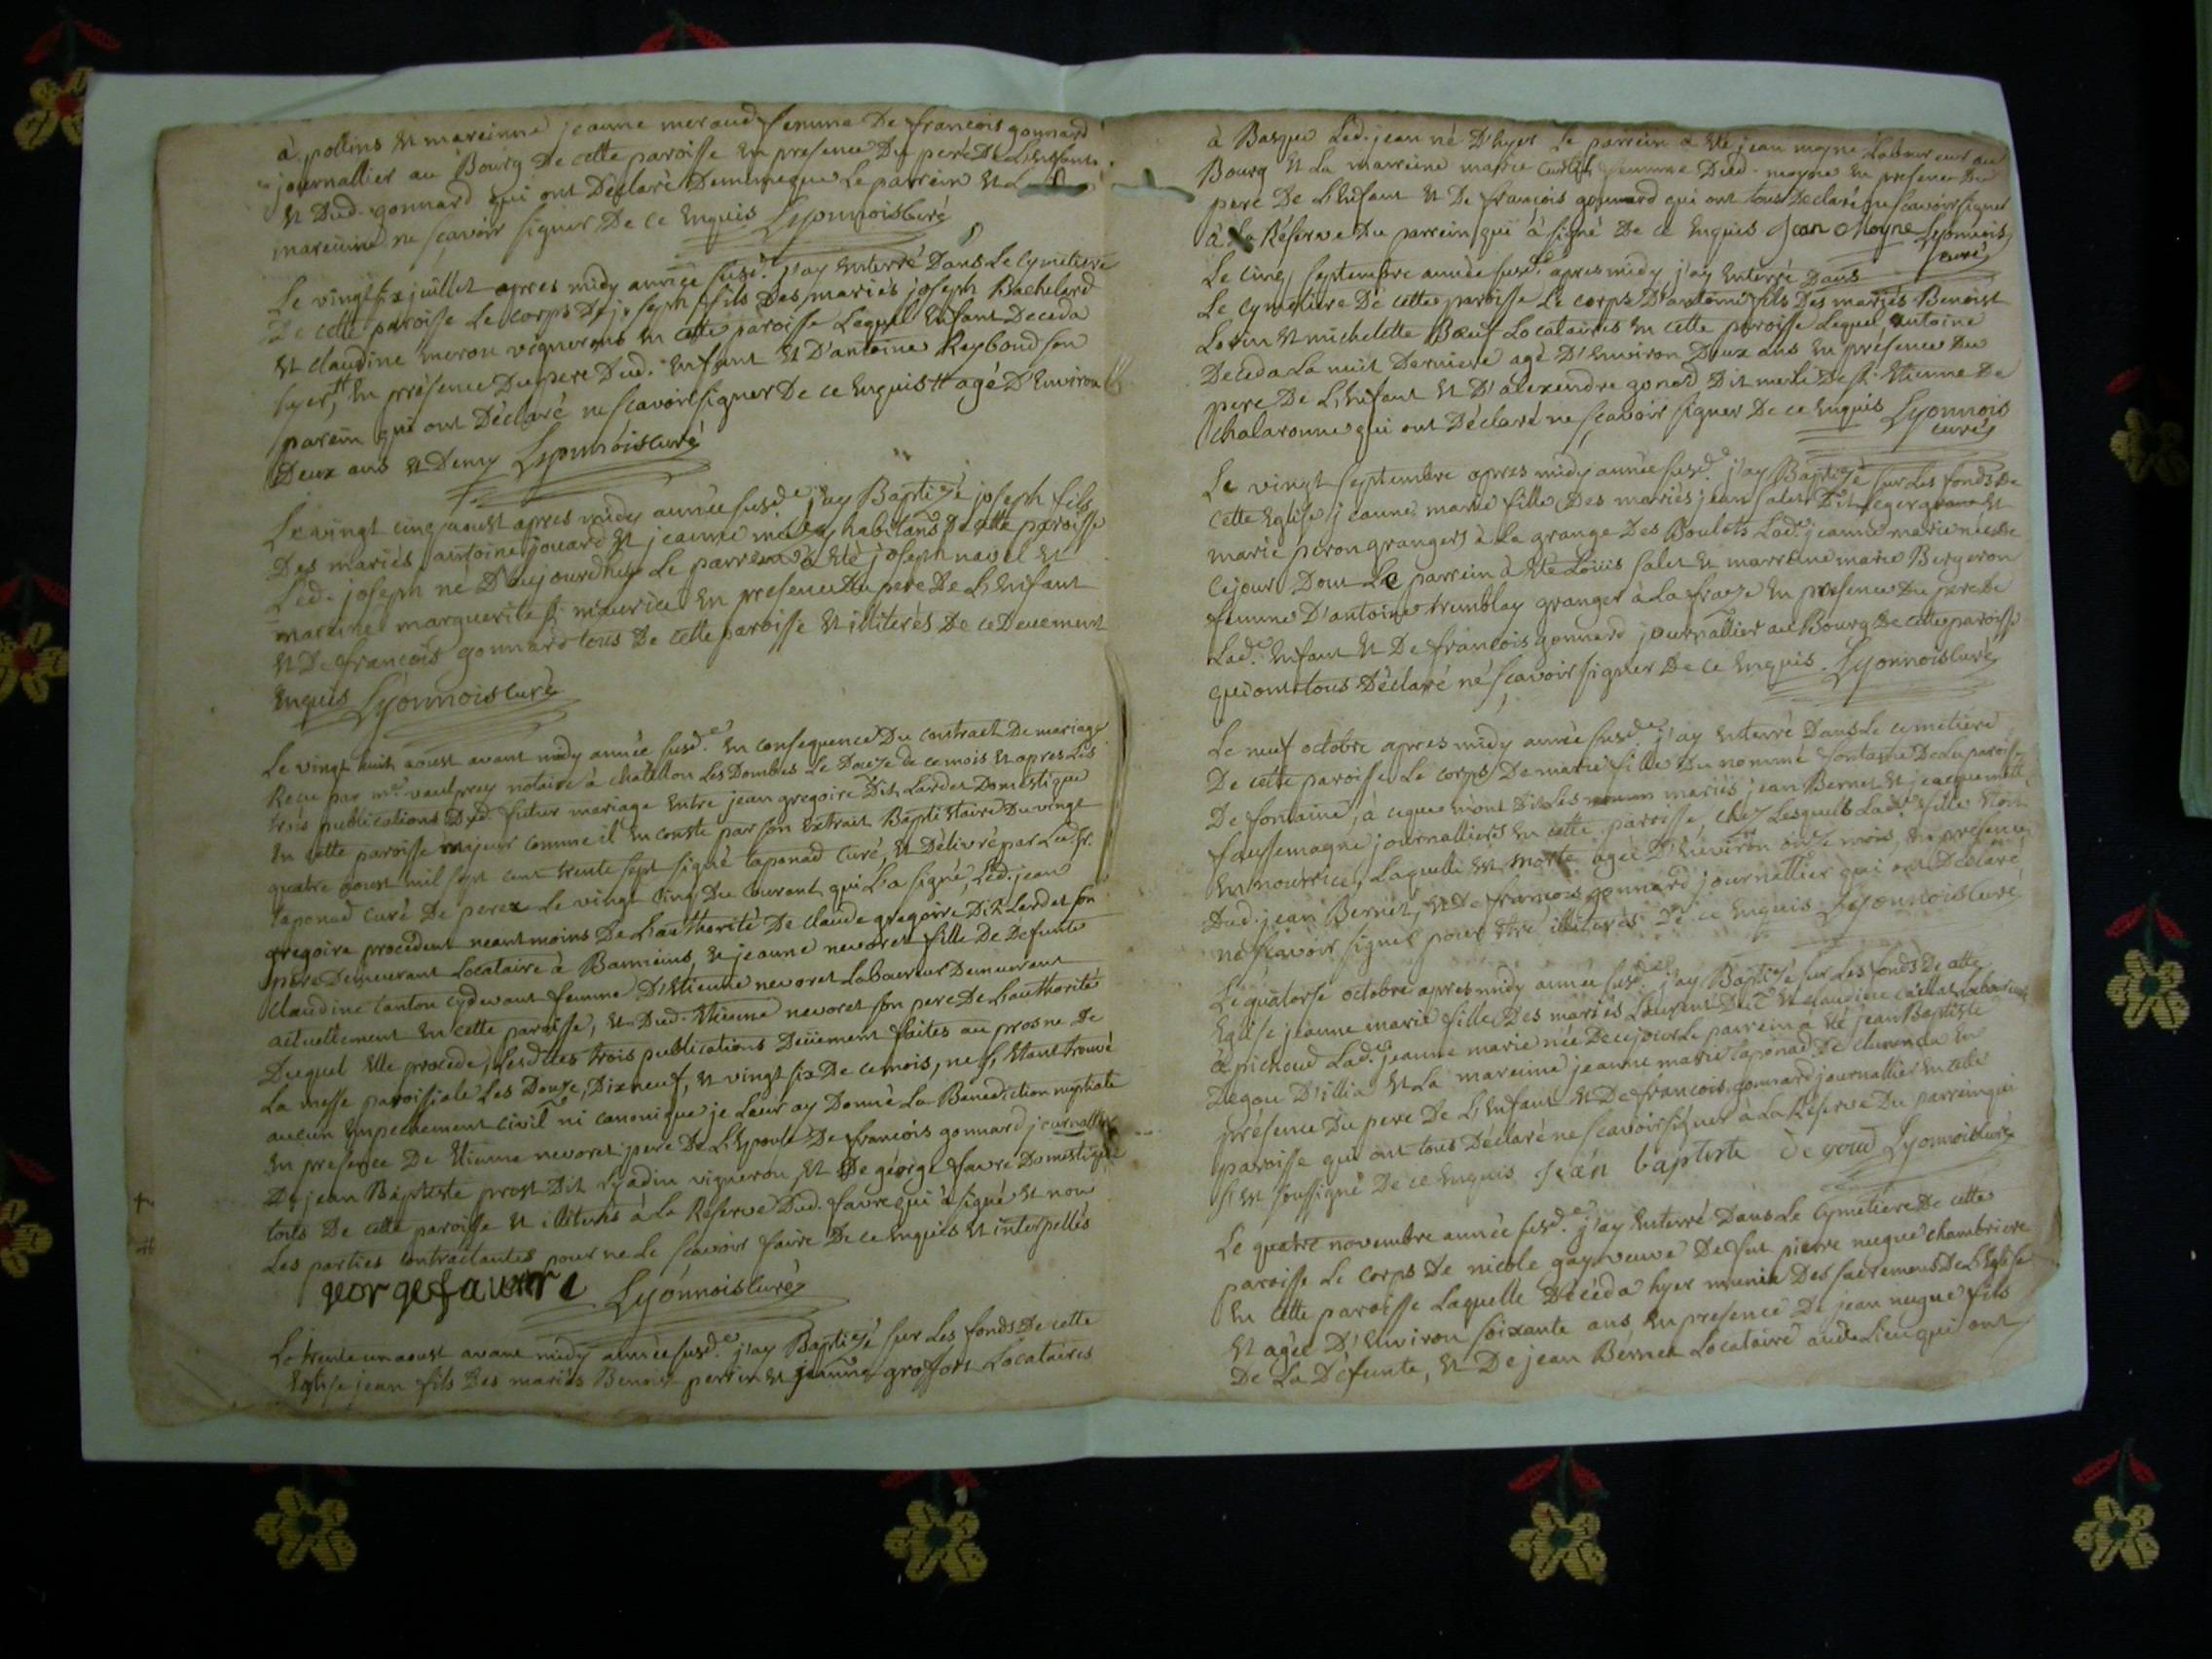 à pollins et mareinne jeanne meraud femme De francois gonnard
journallier au Bourg De cette paroisse En presence Du pere De L'Enfant
et Dud. gonnard qui ont Déclaré Demimeque Le parrein et L
mareinne ne scavoir signer De ce Enquis Lyonnois Curé
Le vingt six juillet apres midy année susd. j'ay Enterré Dans Le Cymetiere
De cette paroisse Le corps De joseph fils Des mariés joseph Bachelard
et claudine meron vignerons En cette paroisse Lequel Enfant Deceda
hyer, En présence Du pere Dud. Enfant et D'antoine Reyboud son
parein qui ont Déclaré ne scavoir signer De ce Enquis agé D'Environ
Deux ans et Demy Lyonnois curé
Le vingt cinq aoust apres midy année susd.e j'ay Baptizé joseph fils
Des mariés antoine jouard et jeanne habitans De cette paroisse
Led. joseph né D'aujourdhuy Le parrein a Eté joseph navel et
mareine marguerite s.t maurice En presence Du pere De L'Enfant
et De francois gonnard tous De cette paroisse et illiterés De ce Deuement
Enquis Lyonnois curé
Le vingt huit aoust avant midy année susd.e En consequence Du contract De mariage
Recu par m.e vaulprey notaire à chatillon Les Dombes Le Douze de ce mois et apres Les
trois publications Dud. futur mariage Entre jean gregoire Dit Lardet Domestique
En cette paroisse majeur comme il En conste par son Extrait Baptistaire Du vingt
quatre aoust mil sept cent trente sept signé taponad Curé, et Délivré par Led. Sr.
taponad Curé De perex Le vingt cinq Du Courant qui L'a signé, Led. jean
gregoire procedent neantmoins De L'authorité De claude gregoire Dit Lardet son
pere Demeurant Locataire à Banneins, et jeanne nevoret fille De Defunte
Claudine tanton cydevant femme D'Etienne nevoret Laboureur Demeurant
actuellement En cette paroisse, et Dud. Etienne nevoret son pere De L'authorité
Duquel Elle procede, Lesdittes trois publications Deüement faites au prosne De
La messe paroissiale Les Douze, Dixneuf, et vingt six De ce mois, ne s'y Etant trouvé
aucun Empechement civil ni canonique je Leur ay Donné La Benediction nuptiale
En presence De Etienne nevoret pere De L'Epouse De francois gonnard journallier
De jean Baptiste prost Dit Lyadin vigneron, et De george favre Domestique
touts De cette paroisse et illiterés à La Réserve Dud. favre qui a signé et non
Les parties Contractantes pour ne Le scavoir faire De ce Enquis et interpellés
george favure Lyonnois curé
Le trente un aoust avant midy année susd.e j'ay Baptizé sur Les fonds De cette
Eglise jean fils Des mariés Benoist perrin et jeanne grosfort Locataires
à Basque Led. jean né D'hyer Le parrein a Eté jean moyne Laboureur au
Bourg et La marreine marie Curtil femme Dud. moyne En presence Du
pere De L'Enfant et De françois gonnard qui ont tous Declaré ne scavoir signer
à La Réserve Du parrein qui à signé De ce Enquis Jean Moyne Lyonnois
curé
Le cinq septembre année susd.e apres midy j'ay Enterré Dans
Le Cymetiere De cette paroisse Le corps D'antoine fils Des mariés Benoist
Lorin et michelette Bœuf Locataires En cette paroisse Lequel antoine
Deceda La nuit Derniere agé D'Environ Deux ans En présence Du
pere De L'Enfant et D'alexendre gonod Dit merle De st. Etienne De
chalaronne qui ont Déclaré ne scavoir signer De ce Enquis Lyonnois
curé
Le vingt septembre apres midy année susd.e j'ay Baptizé sur Les fonds De
cette Eglise jeanne marie fille Des mariés jean salet Dit Leger et
marie peron grangers à La grange Des Boulets Lad.e jeanne marie née De
ce jour Dont Le parrein à Eté Loüis salet et marreine marie Bergeron
femme D'antoine tremblay granger à La fraize En présence Du pere De
Lad.e Enfant et De francois gonnard journallier au Bourg De cette paroisse
qui ont tous Déclaré ne scavoir signer De ce Enquis. Lyonnois curé
Le neuf octobre apres midy année susd.e j'ay Enterré Dans Le cimetiere
De cette paroisse Le corps De marie fille Du nommé fontaine De La paroisse
De fontaine, à ce que m'ont Dit Les mariés jean Bernet et jacquemette
faussemagne journalliers En cette paroisse, chez Lesquels Lad.e fille Etoit
En nourrice, Laquelle Est morte agée D'Environ onze mois, En présence
Dud. jean Bernet, et De francois gonnard journallier qui ont Déclaré
ne scavoir signer pour Etre illiterés De ce Enquis Lyonnois curé
Le quatorse octobre apres midy année susd.e j'ay Baptizé sur Les fonds De cette
Eglise jeanne marie fille Des mariés Laurent Duc et claudine caillat Laboureurs
à pichoud Lad.e jeanne marie née De ce jour Le parrein à Eté jean Baptiste
Degou D'illia et La mareine jeanne marie taponad De En
présence Du pere De L'Enfant et De francois gonnard journallier En cette
paroisse qui ont tous Déclaré ne scavoir signer à La Réserve Du parrein qui
s'est soussigné De ce Enquis Jean baptiste degoud Lyonnois curé
Le quatre novembre année susd.e j'ay Enterré Dans Le Cymetiere De cette
paroisse Le corps De nicole gay veuve De feu pierre nugue chambriere
En cette paroisse Laquelle Décéda hyer munie Des sacremens De L'Eglise
et agée D'Environ soixante ans En presence De jean nugue fils
De La Défunte, et De jean Bernet Locataire aud. Lieu qui ont